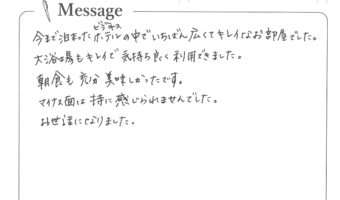 Message
今まで泊まったビジネスホテルの中でいちばん広くてキレイなお部屋でした。
大浴場もキレイで気持ち良く利用できました。
朝食も充分美味しかったです。
マイナス面は特に感じられませんでした。
お世話になりました。